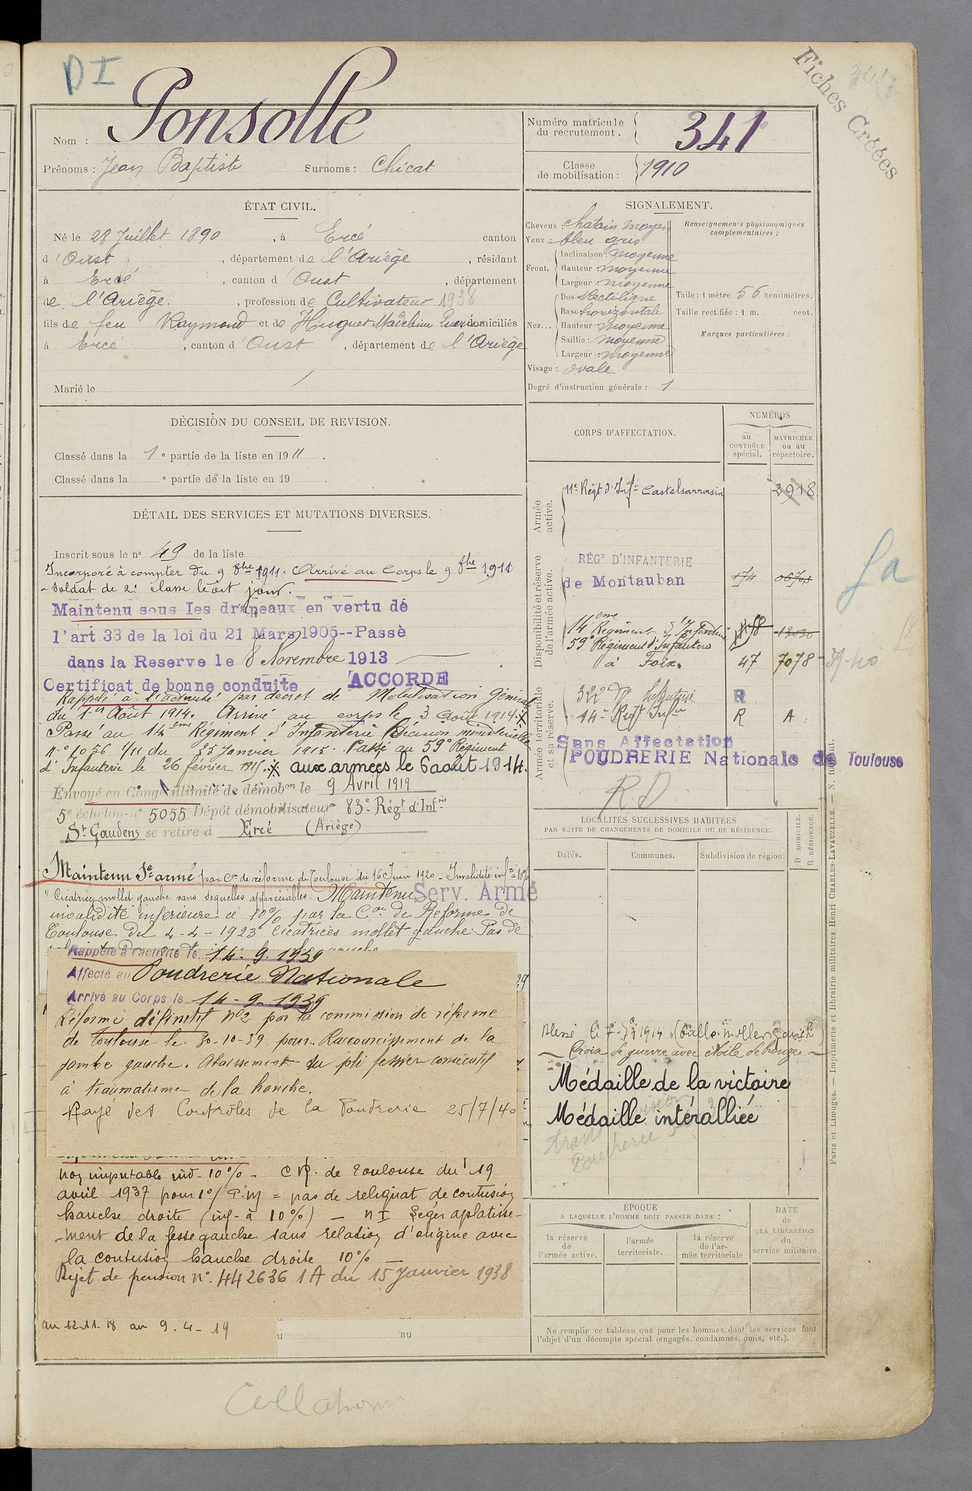 DI
Fiches Créées
Nom : Ponsolle
Prénoms : Jean Baptiste Surnoms : Chicat
Numéro matricule
du recrutement. 341
Classe
de mobilisation : 1910
ÉTAT CIVIL.
Né le 28 Juillet 1890, à Ercé canton
d'Oust, département de l'Ariège, résidant
à Ercé, canton d'Oust, département
de l'Ariège, profession de Cultivateur 1938
fils de feu Raymond et de Huguet domiciliés
à Ercé, canton d'Oust, département de l'Ariège
Marié le
SIGNALEMENT.
Cheveux : chatain moyen
Yeux : bleu gris
Front. Inclinaison : moyenne
Hauteur : moyenne
Largeur : moyenne
Nez... Dos : Rectiligne
Base : horizontale
Hauteur : moyenne
Saillie : moyenne
Largeur : moyenne
Visage : ovale
Degré d'instruction générale : 1
Renseignements physionomiques
complémentaires :
Taille : 1 mètre 56 centimètres.
Taille rectifiée : 1 m. cent.
Marques particulières
DÉCISION DU CONSEIL DE REVISION.
Classé dans la 1e partie de la liste en 1911.
Classé dans la e partie de la liste en 19 .
DÉTAIL DES SERVICES ET MUTATIONS DIVERSES.
Inscrit sous le n° 49 de la liste
Incorporé à compter du 9 8bre 1911. Arrivé au Corps le 9 8bre 1911
Soldat de 2e classe le dit jour.
Maintenu sous les drapeaux en vertu de
l'art 33 de la loi du 21 Mars 1905--Passé
dans la Reserve le 8 Novembre 1913
Certificat de bonne conduite ACCORDE
Rappelé à l'activité par décret de Mobilisation Générale
du 1er Août 1914. Arrivé au corps le 3 août 1914.
Passé au 14eme Régiment d'Infanterie Décision ministérielle
N° 1056 1/11 du 25 Janvier 1915. Passé au 59e Régiment
d'Infanterie le 26 février 1915. aux armées le 6 août 1914.
Envoyé en Congé illimité de démobon le 9 Avril 1919
5e échelon n° 5055 Dépôt démobilisateur 83e Régt d'Infrie
St Gaudens se retire à Ercé (Ariège)
Maintenu Sce armé par Con de réforme de Toulouse du 16 Juin 1920 - Invalidité infre à 10%
"Cicatrice mollet gauche sans séquelles appréciables. Maintenu Serv. Armé
invalidité inférieure à 10% par la Con de Réforme de
Toulouse du 4-4-1923 Cicatrices mollet gauche Pas de
Rappelé à l'activité le 14-9-1939
Affecté au Poudrerie Nationale
Arrivé au Corps le 14-9-1939
Réformé définitif n°2 par la commission de réforme
de Toulouse le 30-10-39 pour Raccourcissement de la
jambe gauche. Abaissement du pli fessier consécutif
à traumatisme de la hanche.
Rayé des Contrôles de la Poudrerie 25/7/40
non imputable ind. 10% - CR. de Toulouse du 19
avril 1937 pour = pas de reliquat de contusion
hanche droite (inf. à 10%) - n I Léger aplatisse-
-ment de la fesse gauche sans relation d'origine avec
la contusion hanche droite 10% -
Rejet de pension n° 442636 1A du 15 Janvier 1938
au 12.11.18 au 9-4-19
au
CORPS D'AFFECTATION.
NUMÉROS
au
CONTRÔLE
spécial.
MATRICULE
ou au
répertoire.
Armée
active.
11e Régt d'Infie Castelsarrasin 2918
Disponibilité et réserve
de l'armée active.
RÉGt D'INFANTERIE
de Montauban
14eme Régiment d'Infanterie
59e Régiment d'Infanterie
à Foix. 47 7078
Armée territoriale
et sa réserve.
R
14e Regt Infie R A
Sans Affectation
POUDRERIE Nationale de Toulouse
RD
LOCALITÉS SUCCESSIVES HABITÉES
PAR SUITE DE CHANGEMENTS DE DOMICILE OU DE RÉSIDENCE.
Dates. Communes. Subdivision de région.
D DOMICILE.
R RÉSIDENCE.
Croix de guerre avec étoile de bronze
Médaille de la victoire
Médaille intéralliée
ÉPOQUE
A LAQUELLE L'HOMME DOIT PASSER DANS :
la réserve
de
l'armée active.
l'armée
territoriale.
la réserve
de l'ar-
mée territoriale
DATE
de
LA LIBÉRATION
du
service militaire.
Ne remplir ce tableau que pour les hommes dont les services font
l'objet d'un décompte spécial (engagés, condamnés, omis, etc.).
Paris et Limoges. — Imprimerie et librairie militaires Henri CHARLES-LAVAUZELLE.